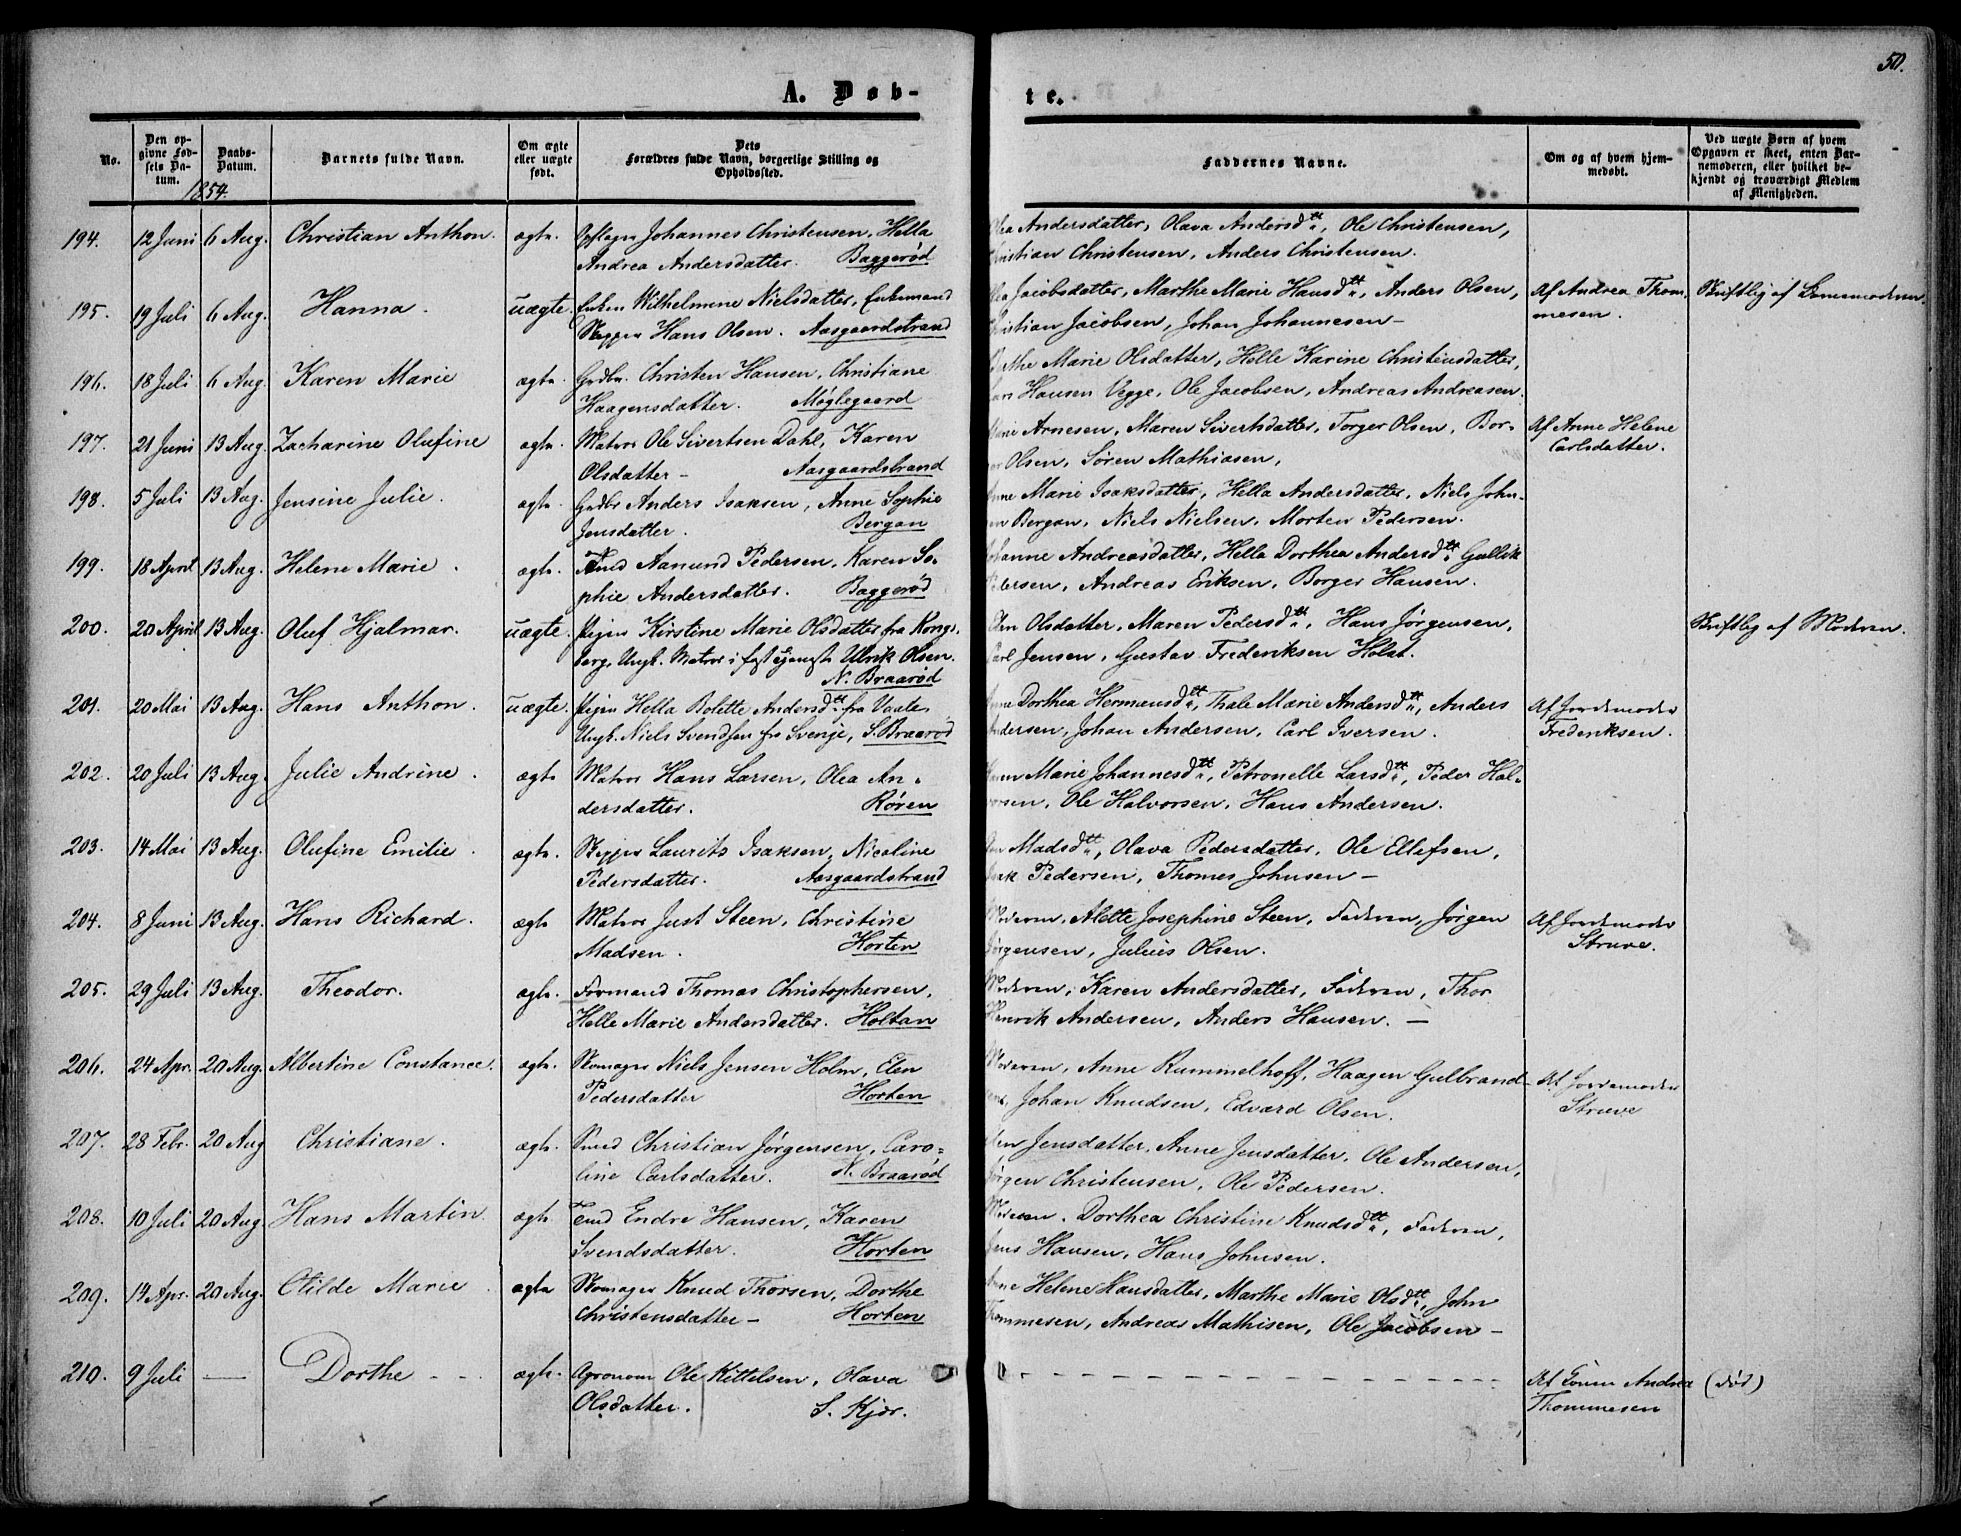 50.
A. Døb-
te.
No.
Den opgivne Fødsels Datum.
Daabs-Datum.
Barnets fulde Navn.
Om ægte eller uægte født.
Dets Forældres fulde Navn, borgerlige Stilling og Opholdssted.
Faddernes Navne.
Om og af hvem hjemmedøbt.
Ved uægte Børn af hvem Opgaven er skeet, enten Barnemoderen, eller hvilket bekjendt og troværdigt Medlem af Menigheden.
1854.
194. 12 Juni 6 Aug. Christian Anthon. ægte. Johannes Christensen, Hella
Andrea Andersdatter. Baggerød
Andersdatter, Olava Andersdtt, Ole Christensen,
Christensen, Anders Christensen.
195. 19 Juli 6 Aug. Hanna. uægte. Enken Wilhelmine Nielsdatter, Enkemand
Skipper Hans Olsen. Aasgaardstrand
Jacobsdatter, Marthe Marie Hansdtt, Anders Olsen,
Jacobsen, Johan Johannesen –
Af Andrea Thom
mesen.
Skriftlig af
196. 18 Juli 6 Aug. Karen Marie ægte. Grdbr. Christen Hansen, Christiane
Haagensdatter. Møglegaard
Marie Olsdatter, Helle Karine Christensdatter,
Hansen Vegge, Ole Jacobsen, Andreas Andreasen.
197. 21 Juni 13 Aug. Zacharine Olufine ægte. Matros Ole Sivertsen Dahl, Karen
Olsdatter – Aasgaardstrand
Arnesen, Maren Sivertsdatter, Torger Olsen, Bor-
Olsen, Søren Mathiasen,
Af Anne Helene
Carlsdatter.
198. 5 Juli 13 Aug. Jensine Julie. ægte. Grdbr Anders Isaksen, Anne Sophie
Jensdatter. Bergan
Marie Isaksdatter, Hella Andersdatter, Niels John-
Bergan, Niels Nielsen, Morten Pedersen.
199. 18 April 13 Aug. Helene Marie. ægte. Aanund Pedersen, Karen So-
phie Andersdatter. Baggerød
Andreasdatter, Hella Dorthea Andersdtt Gullik
Andreas Eriksen, Borger Hansen.
200. 20 April 13 Aug. Oluf Hjalmar. uægte. Pigen Kirstine Marie Olsdatter fra Kongs-
berg, Ungk. Matros i fast Tjeneste Ulrik Olsen.
N. Braarød
Olsdatter, Maren Pedersdtt, Hans Jørgensen,
Jensen, Gustav Frederiksen Holst.
Skriftlig af Moderen.
201. 20 Mai 13 Aug. Hans Anthon. uægte. Pigen Hella Bolette Andersdtt fra Vaale
Ungk. Niels Svendsen fra Sverige, S. Braarød
Dorthea Hermansdtt, Thale Marie Andersdtt, Anders
Johan Andersen, Carl Iversen.
Af Jordemoder
Frederiksen.
202. 20 Juli 13 Aug. Julie Andrine. ægte Matros Hans Larsen, Olea An-
dersdatter. Røren
Marie Johannesdtt, Petronelle Larsdtt, Peder Hal-
Ole Halvorsen, Hans Andersen.
203. 14 Mai 13 Aug. Olufine Emilie. ægte. Skipper Laurits Isaksen, Nicoline
Pedersdatter. Aasgaardstrand
Madsdtt, Olava Pedersdatter, Ole Ellefsen,
Pedersen, Thomes Johnsen –
204. 8 Juni 13 Aug. Hans Richard. ægte Matros Just Steen, Christine
Madsen. Horten
Moderen, Alette Josephine Steen, Faderen, Jørgen
Jørgensen, Julius Olsen.
Af Jordemoder
Struve.
205. 29 Juli 13 Aug. Theodor. ægte. Formand Thomas Christophersen,
Helle Marie Andersdatter. Holtan
Moderen, Karen Andersdatter, Faderen, Thor
Henrik Andersen, Anders Hansen. –
206. 24 Apr. 20 Aug. Albertine Constance. ægte. Skomager Niels Jensen Holm, Elen
Pedersdatter Horten
Moderen, Anne Rummelhoff, Haagen Gulbrand-
Johan Knudsen, Edvard Olsen.
Af Jordemoder
Struve
207. 28 Febr. 20 Aug Christiane. ægte. Smed Christian Jørgensen, Caro-
line Carlsdatter. N. Braarød
Jensdatter, Anne Jensdatter, Ole Andersen,
Jørgen Christensen, Ole Pedersen.
208. 10 Juli 20 Aug Hans Martin. ægte Endre Hansen, Karen
Svendsdatter. Horten
Moderen, Dorthea Christine Knudsdtt, Faderen,
Jens Hansen, Hans Johnsen.
209. 14 Apr. 20 Aug. Olilde Marie. ægte Skomager Knud Thorsen, Dorthe
Christensdatter – Horten
Helene Hansdatter, Marthe Marie Olsdtt, John
Thommesen, Andreas Mathisen, Ole Jacobsen –
210. 9 Juli — Dorthe ægte. Agronom Ole Kittelsen, Olava
Olsdatter. S. Kjær.
Andrea
Thommesen
(død)